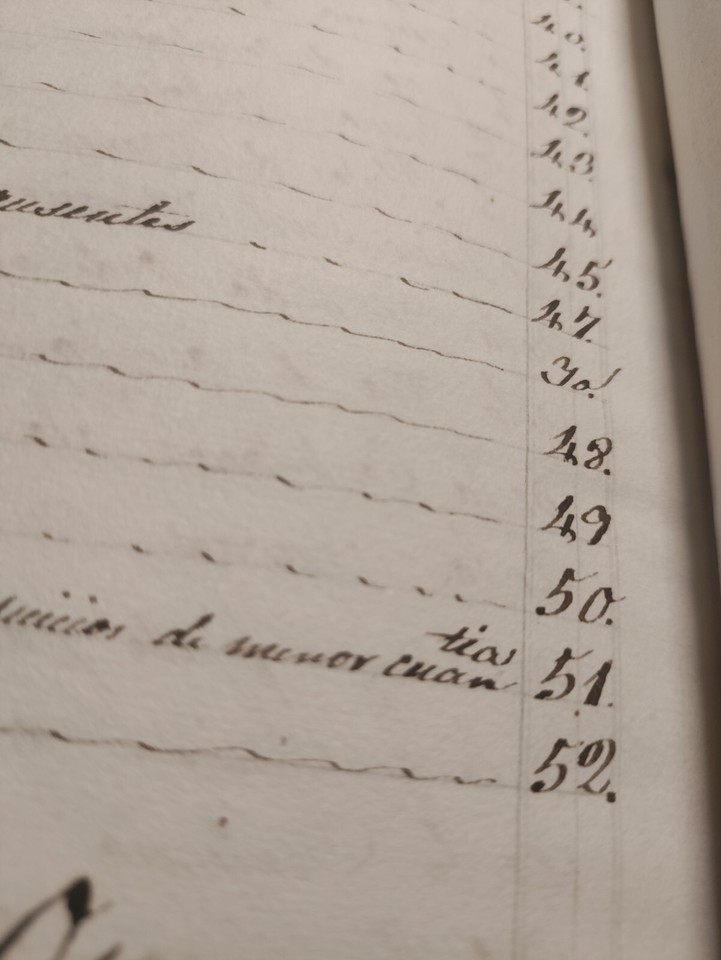 40.
41.
42.
43.
44.
45.
47.
30.
48.
49
50.
juicios de menor cuantia 51.
52.